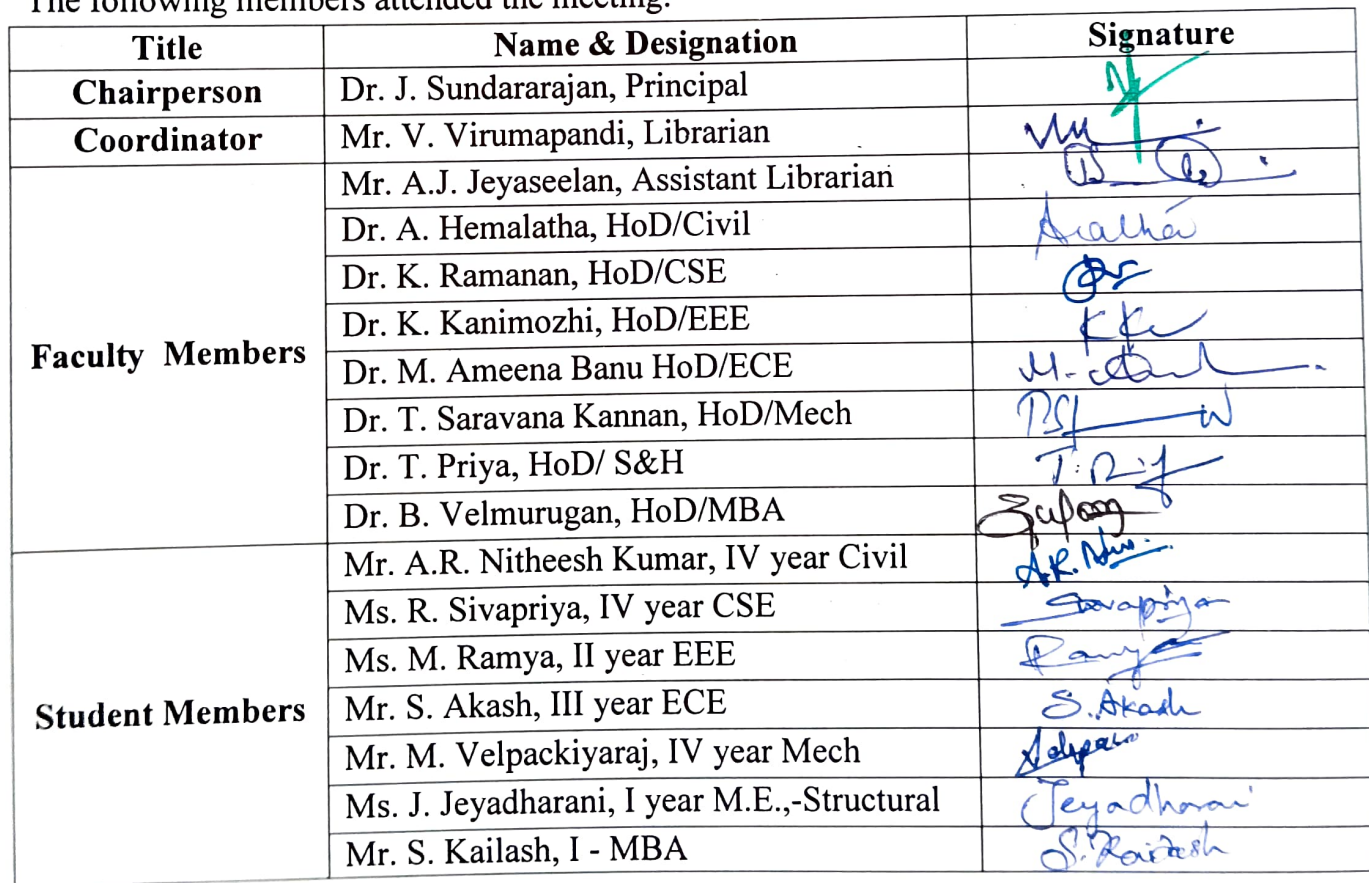 The following members attended the meeting.
Title Name & Designation Signature
Chairperson Dr. J. Sundararajan, Principal
Coordinator Mr. V. Virumapandi, Librarian
Mr. A.J. Jeyaseelan, Assistant Librarian
Dr. A. Hemalatha, HoD/Civil
Dr. K. Ramanan, HoD/CSE
Dr. K. Kanimozhi, HoD/EEE
Faculty Members
Dr. M. Ameena Banu HoD/ECE
Dr. T. Saravana Kannan, HoD/Mech
Dr. T. Priya, HoD/ S&H
Dr. B. Velmurugan, HoD/MBA
Mr. A.R. Nitheesh Kumar, IV year Civil
Ms. R. Sivapriya, IV year CSE
Ms. M. Ramya, II year EEE
Student Members Mr. S. Akash, III year ECE S. Akash
Mr. M. Velpackiyaraj, IV year Mech
Ms. J. Jeyadharani, I year M.E.,-Structural
Mr. S. Kailash, I - MBA